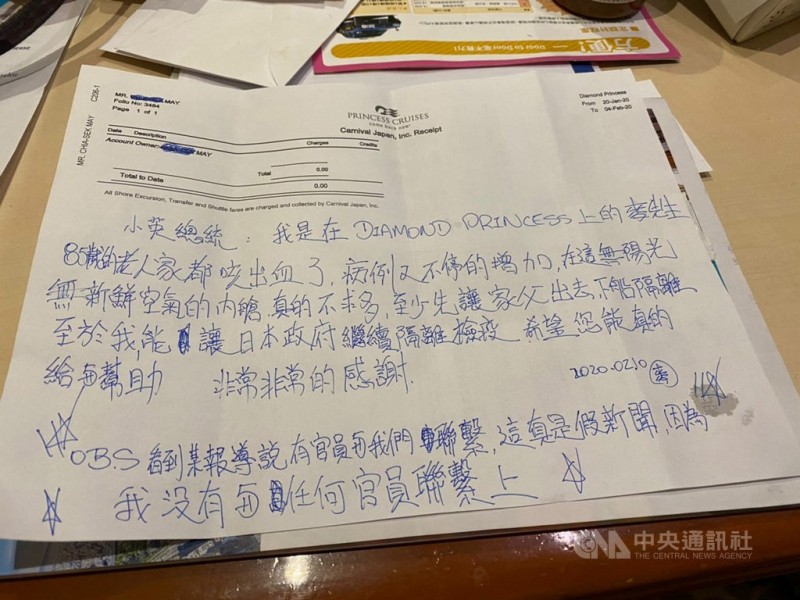 方便! — Door to Door 毫不費力!
MR. CHIA-SEK MAY C236-1
MR. MAY
Folio No: 3484
Page 1 of 1
PRINCESS CRUISES
come back new
Carnival Japan, Inc. Receipt
Diamond Princess
From 20-Jan-20
To 04-Feb-20
Date Description Charges Credits
Account Owner: MAY
Total 0.00
Total to Date 0.00
All Shore Excursion, Transfer and Shuttle fares are charged and collected by Carnival Japan, Inc.
小英總統: 我是在 DIAMOND PRINCESS 上的 先生
85歲的老人家都咳出血了, 病例又不停的增加, 在這無陽光
無新鮮空氣的內艙, 真的不求多, 至少先讓家父出去, 下船隔離
至於我, 能讓日本政府繼續隔離檢疫 希望您能真的
給 幫助 非常非常的感謝.
2020.02.10
OBS 看到某報導說有官員 我們聯繫, 這真是假新聞, 因為
我沒有 任何官員聯繫上
CNA 中央通訊社
THE CENTRAL NEWS AGENCY